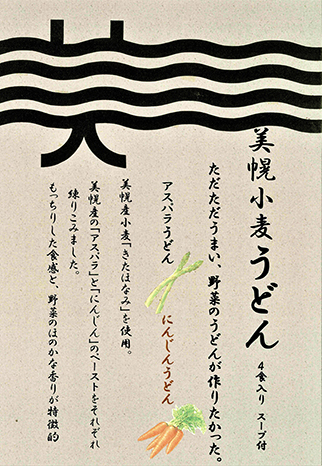 美幌小麦うどん
4食入り スープ付
ただただうまい、野菜のうどんが作りたかった。
アスパラうどん
にんじんうどん
美幌産小麦「きたほなみ」を使用。
美幌産の「アスパラ」と「にんじん」のペーストをそれぞれ
練りこみました。
もっちりした食感と、野菜のほのかな香りが特徴的